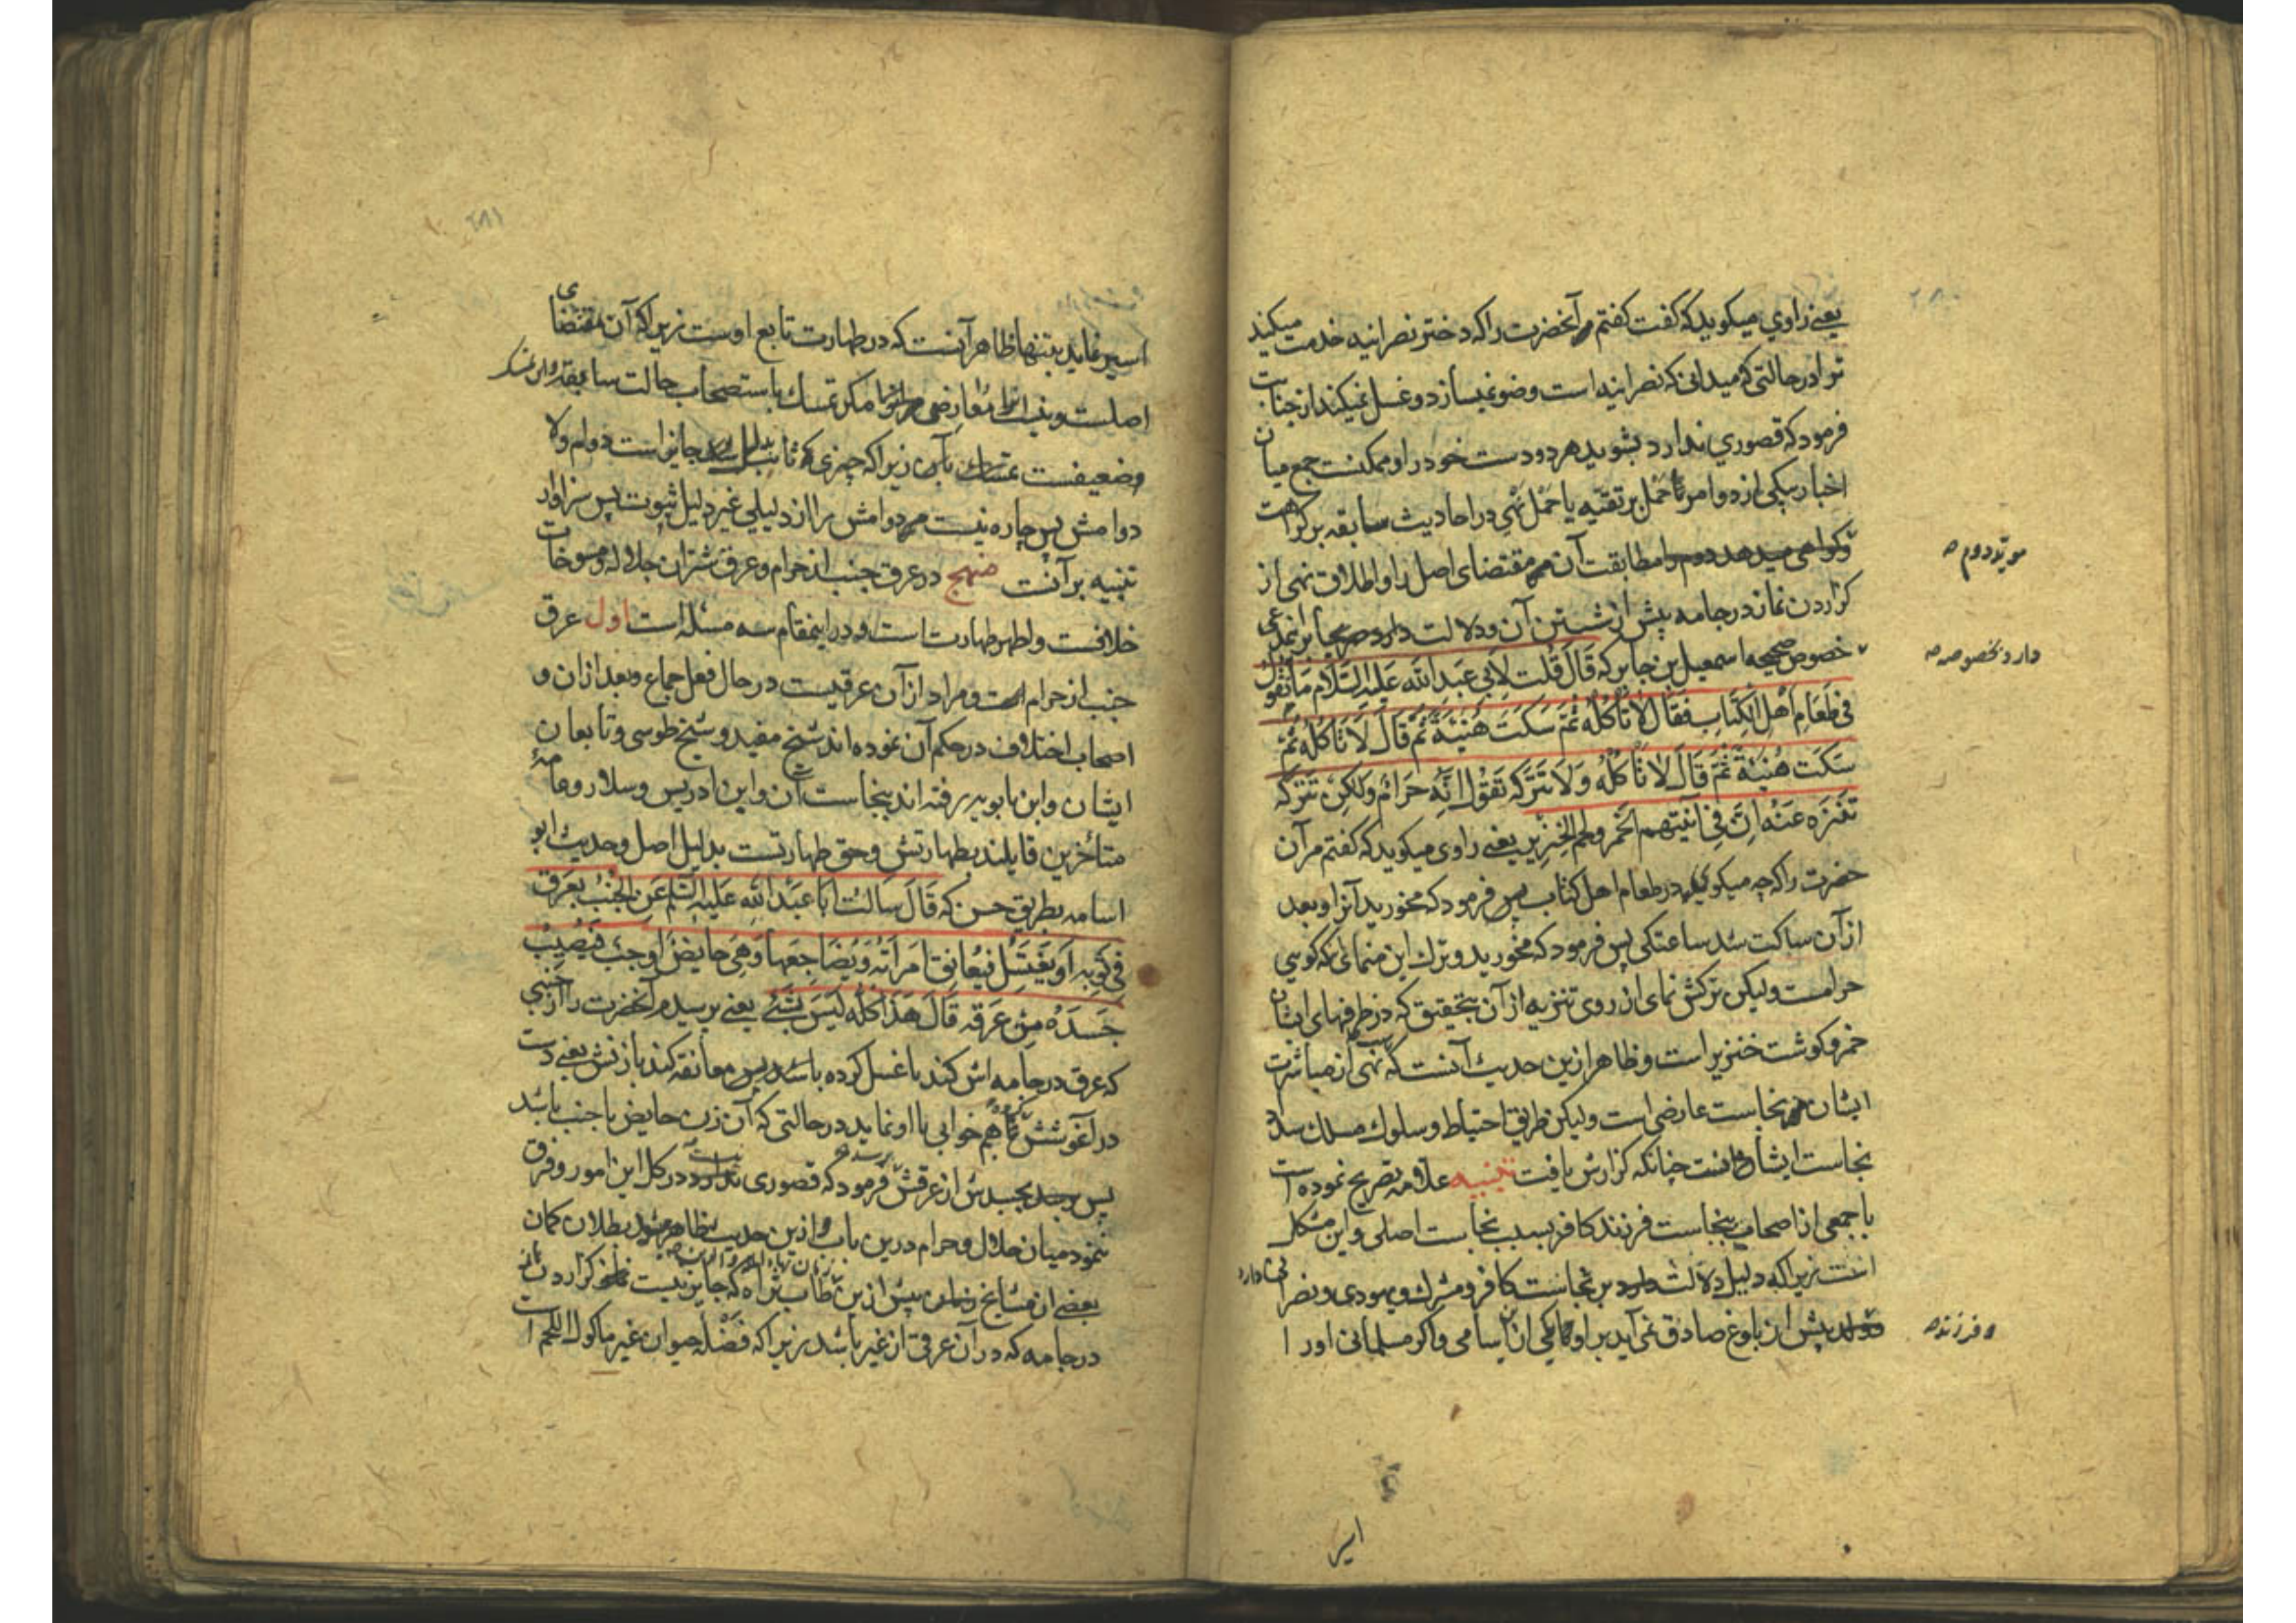 ۲۸۰
یعنی راوي میکوید که گفت گفتم مر آنحضرت را که دختر نصرانیه خدمت میکند
ترا در حالتی که میدانی که نصرانیه است وضو نمیسازد و غسل نمیکند از جنابت
فرمود که قصوري ندارد بشوید هر دو دست خود را و ممکنست جمع میان
اخبار بیکی از دو امر یا حمل بر تقیّه یا حمل نهي در احادیث سابقه بر کراهت
و کواهی میدهد دوم را مطابقت آن مر مقتضای اصل را و اطلاق نهی از
مویّد دوم
کزاردن نماز در جامه پیش از شستن آن و دلالت دارد صریحا بر این مدعی
خصوص صحیحه اسمعیل بن جابر که قَالَ قُلْت لِاَبی عَبدالله عَلَیهِ السَّلَام مَا تَقُولُ
دارد بخصوصه
فی طَعَامِ اَهْلِ الْکِتَابِ فَقَالَ لَا تَأکُلْهُ ثُمَّ سَکَتَ هُنَیْئَةً ثُمَّ قَالَ لَا تَاکُلْهُ ثُمَّ
سَکَتَ هُنَیْئَةً ثُمَّ قَالَ لَا تَاکُلْهُ وَلَا تَتْرُکْه تَقُوْلُ اِنَّه حَرَامٌ وَلٰکِنْ تَتْرُکُه
تَنَزُّه عَنْهُ اِنَّ فِی اٰنِیَتِهِم الخَمر ولحم الخِنْزِیر یعنی راوی میکوید که کفتم مر آن
حضرت را که چه میکوئی در طعام اهل کتاب پس فرمود که مخورید آنرا و بعد
از آن ساکت شد ساعتکی پس فرمود که مخورید و ترک این منمای که کویی
حرامست ولیکن ترکش نمای از روی تنزیه از آن بتحقیق که در ظرفهای ایشان
خمر و کوشت خنزیر است و ظاهر ازین حدیث آنست که نهی از مباشرت
ایشان نجاست عارضی است ولیکن طریق احتیاط و سلوک مسلک سداد
نجاست ایشانست چنانکه کزارش یافت تنبیه علامه تصریح نموده است
با جمعی از اصحاب بنجاست فرزند کافر بسبب نجاست اصلی و این مشکل
است زیرا که دلیل دلالت دارد بر نجاست کافر و مشرک و یهودی و نصرانی
پیش از بلوغ صادق نمی آید بر او یکی از این اسامی و اکر مسلمانی او را
و فرزند
اسیر
۲۸۱
اسیر نماید بتنها ظاهر آنست که در طهارت تابع اوست زیرا که آن مقتضای
اصلست و نیست معارضی مر او را مکر تمسک باستصحاب حالت سابقه
وضعیفست تمسک بآن زیرا که چیزی که ثابت جایز است دوام و لا
دوامش پس چاره نیست مر دوامش را از دلیلی غیر دلیل ثبوت پس سزاوار
تنبیه بر آنست منهج در عرق جنب از حرام و عرق شتران جلاله و مسوخات
خلافست و اظهر طهارت است و در اینمقام سه مسئله است اول عرق
جنب از حرام است و مراد از آن عرقیست در حال فعل جماع و بعد از ان و
اصحاب اختلاف در حکم آن نموده اند شیخ مفید و شیخ طوسی و تابعان
ایشان و ابن بابویه رفته اند بنجاست آن و ابن ادریس و سلار و عامهٔ
متأخرین قایلند بطهارتش و حق طهارتست بدلیل اصل و حدیث ابو
اسامه بطریق حسن که قَالَ سَالتُ اَبَا عَبْدِ اللهِ عَلَیهِ السَّلَم عَنِ الْجُنُبِ یَعْرَقُ
فِی ثَوبِه اَو یَغْتَسِلُ فَیُعَانِقُ امْرَأتَهُ وَیُضَاجِعُهَا وَهِیَ حَایِضٌ اَو جُنُبٌ فَیُصِیْبُ
جَسَدَهُ مِنْ عَرَقِهِ قَالَ هٰذَا کُلُّهُ لَیْسَ بِشَیْءٍ یعنی پرسیدم آنحضرت را از جنبی
که عرق در جامه اش کند یا غسل کرده باشد پس معانقه کند با زنش یعنی دست
در آغوشش و همخوابی با او نماید در حالتی که آن زن حایض یا جنب باشد
پس برسد بجسدش از عرقش فرمود که قصوری در کل این امور و فرق
ننمود میان حلال و حرام درین باب و ازین حدیث ظاهر میشود بطلان کمان
بعضی از مشایخ پیش ازین که جایز نیست کزاردن نماز
در جامه که در آن عرقی از غیر باشد زیرا که فَضْلَهٔ حیوان غیر ماکول اللحم است